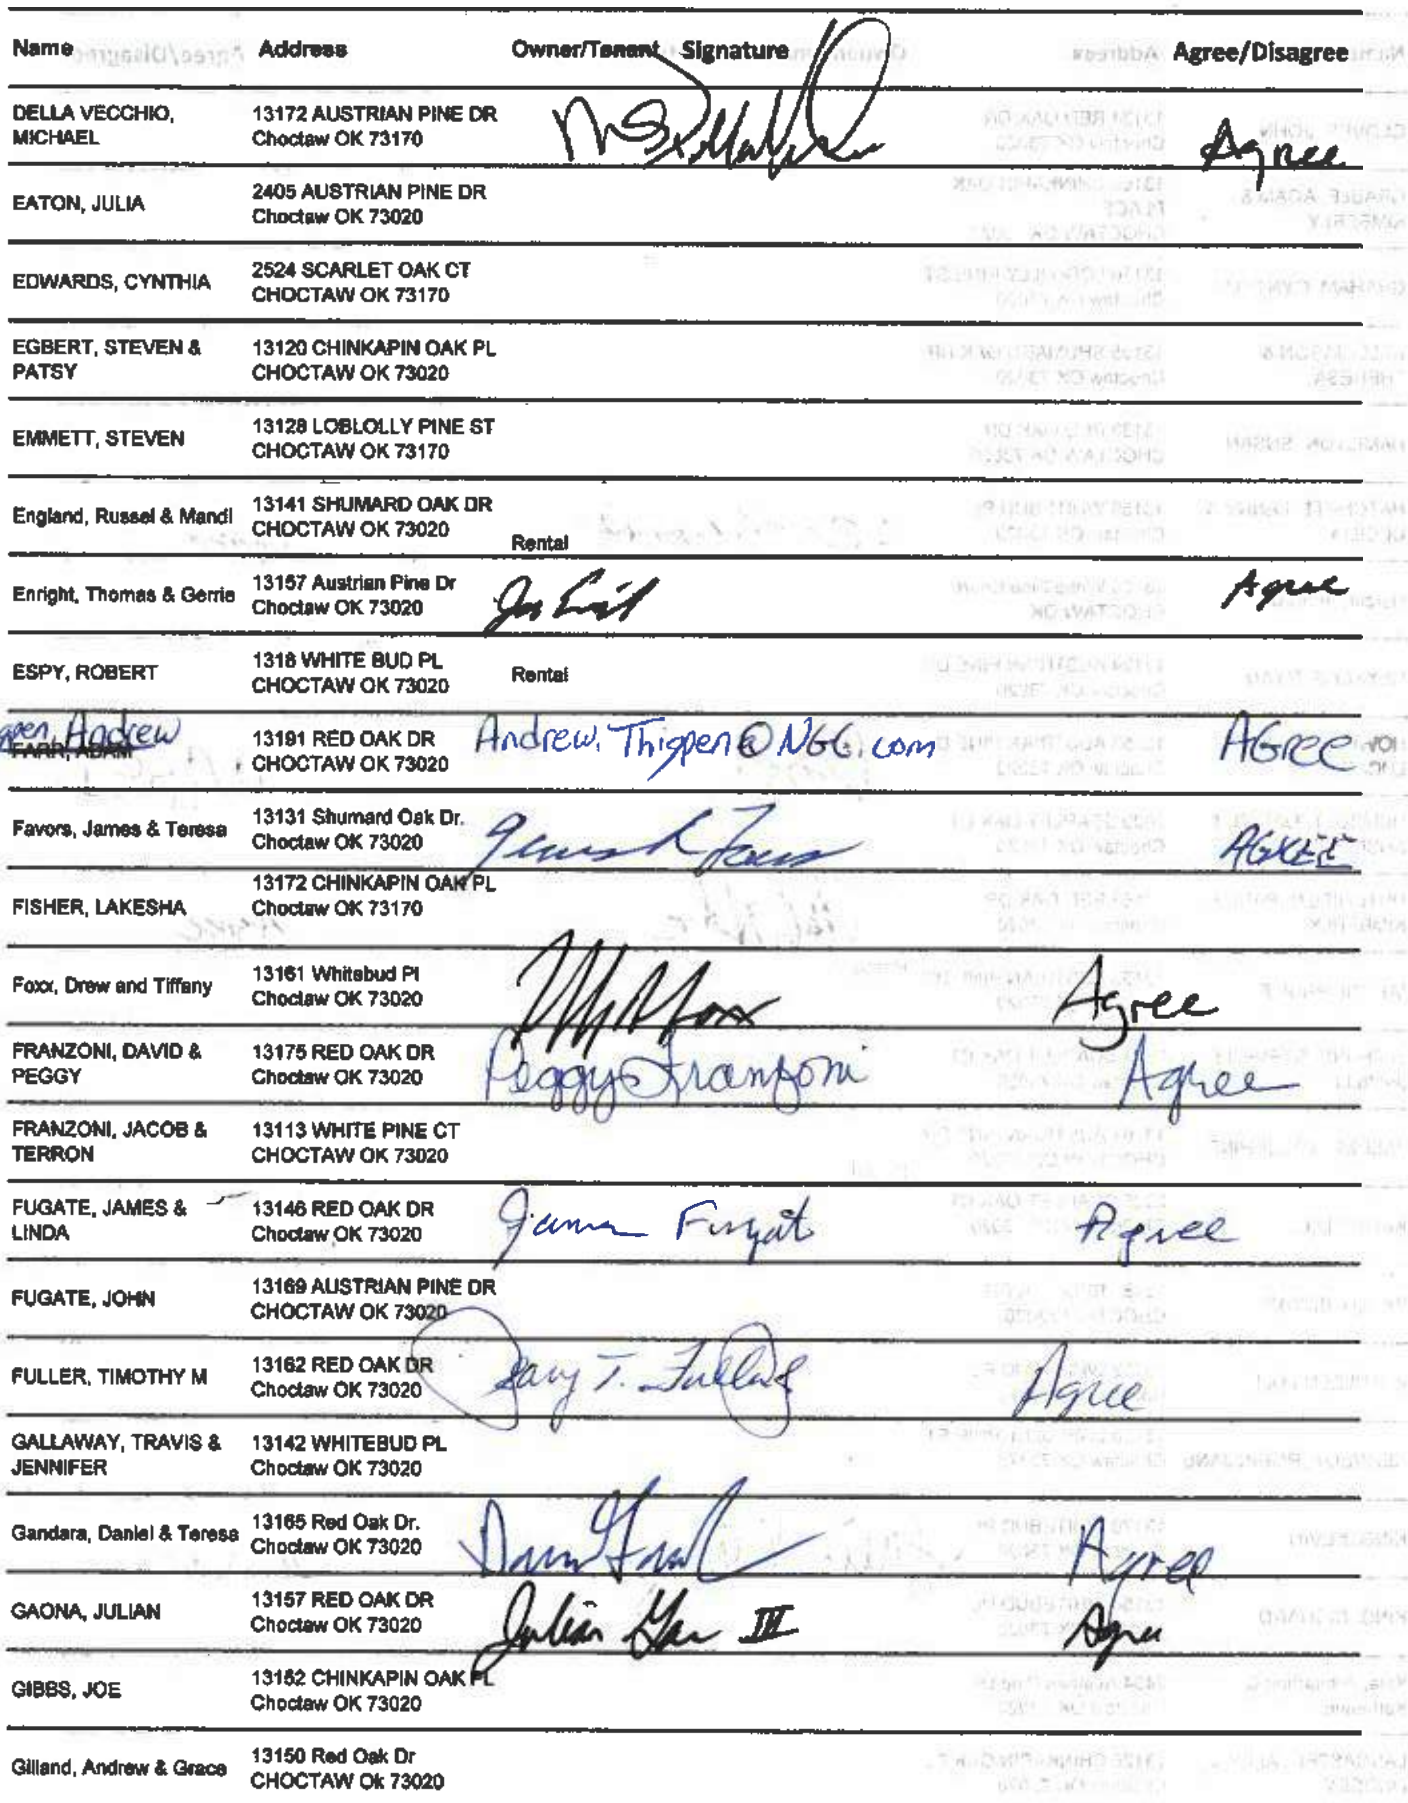 Name Address Owner/Tenant Signature Agree/Disagree
DELLA VECCHIO, 13172 AUSTRIAN PINE DR
MICHAEL Choctaw OK 73170 Agree
EATON, JULIA 2405 AUSTRIAN PINE DR
Choctaw OK 73020
EDWARDS, CYNTHIA 2524 SCARLET OAK CT
CHOCTAW OK 73170
EGBERT, STEVEN & 13120 CHINKAPIN OAK PL
PATSY CHOCTAW OK 73020
EMMETT, STEVEN 13128 LOBLOLLY PINE ST
CHOCTAW OK 73170
England, Russel & Mandi 13141 SHUMARD OAK DR
CHOCTAW OK 73020 Rental
Enright, Thomas & Gerrie 13157 Austrian Pine Dr
Choctaw OK 73020 Agree
ESPY, ROBERT 1318 WHITE BUD PL
CHOCTAW OK 73020 Rental
Andrew
FARR, ADAM 13191 RED OAK DR Andrew.Thigpen@NGC.com AGREE
CHOCTAW OK 73020
Favors, James & Teresa 13131 Shumard Oak Dr.
Choctaw OK 73020 AGREE
FISHER, LAKESHA 13172 CHINKAPIN OAK PL
Choctaw OK 73170
Foxx, Drew and Tiffany 13161 Whitebud Pl
Choctaw OK 73020 Agree
FRANZONI, DAVID & 13175 RED OAK DR
PEGGY Choctaw OK 73020 Peggy Franzoni Agree
FRANZONI, JACOB & 13113 WHITE PINE CT
TERRON CHOCTAW OK 73020
FUGATE, JAMES & 13146 RED OAK DR
LINDA Choctaw, OK 73020 James Fugate Agree
FUGATE, JOHN 13169 AUSTRIAN PINE DR
CHOCTAW OK 73020
FULLER, TIMOTHY M 13162 RED OAK DR
Choctaw OK 73020 T. Agree
GALLAWAY, TRAVIS & 13142 WHITEBUD PL
JENNIFER Choctaw OK 73020
Gandara, Daniel & Teresa 13165 Red Oak Dr.
Choctaw OK 73020 Agree
GAONA, JULIAN 13157 RED OAK DR
Choctaw OK 73020 Julian III Agree
GIBBS, JOE 13152 CHINKAPIN OAK PL
Choctaw OK 73020
Gilland, Andrew & Grace 13150 Red Oak Dr
CHOCTAW Ok 73020